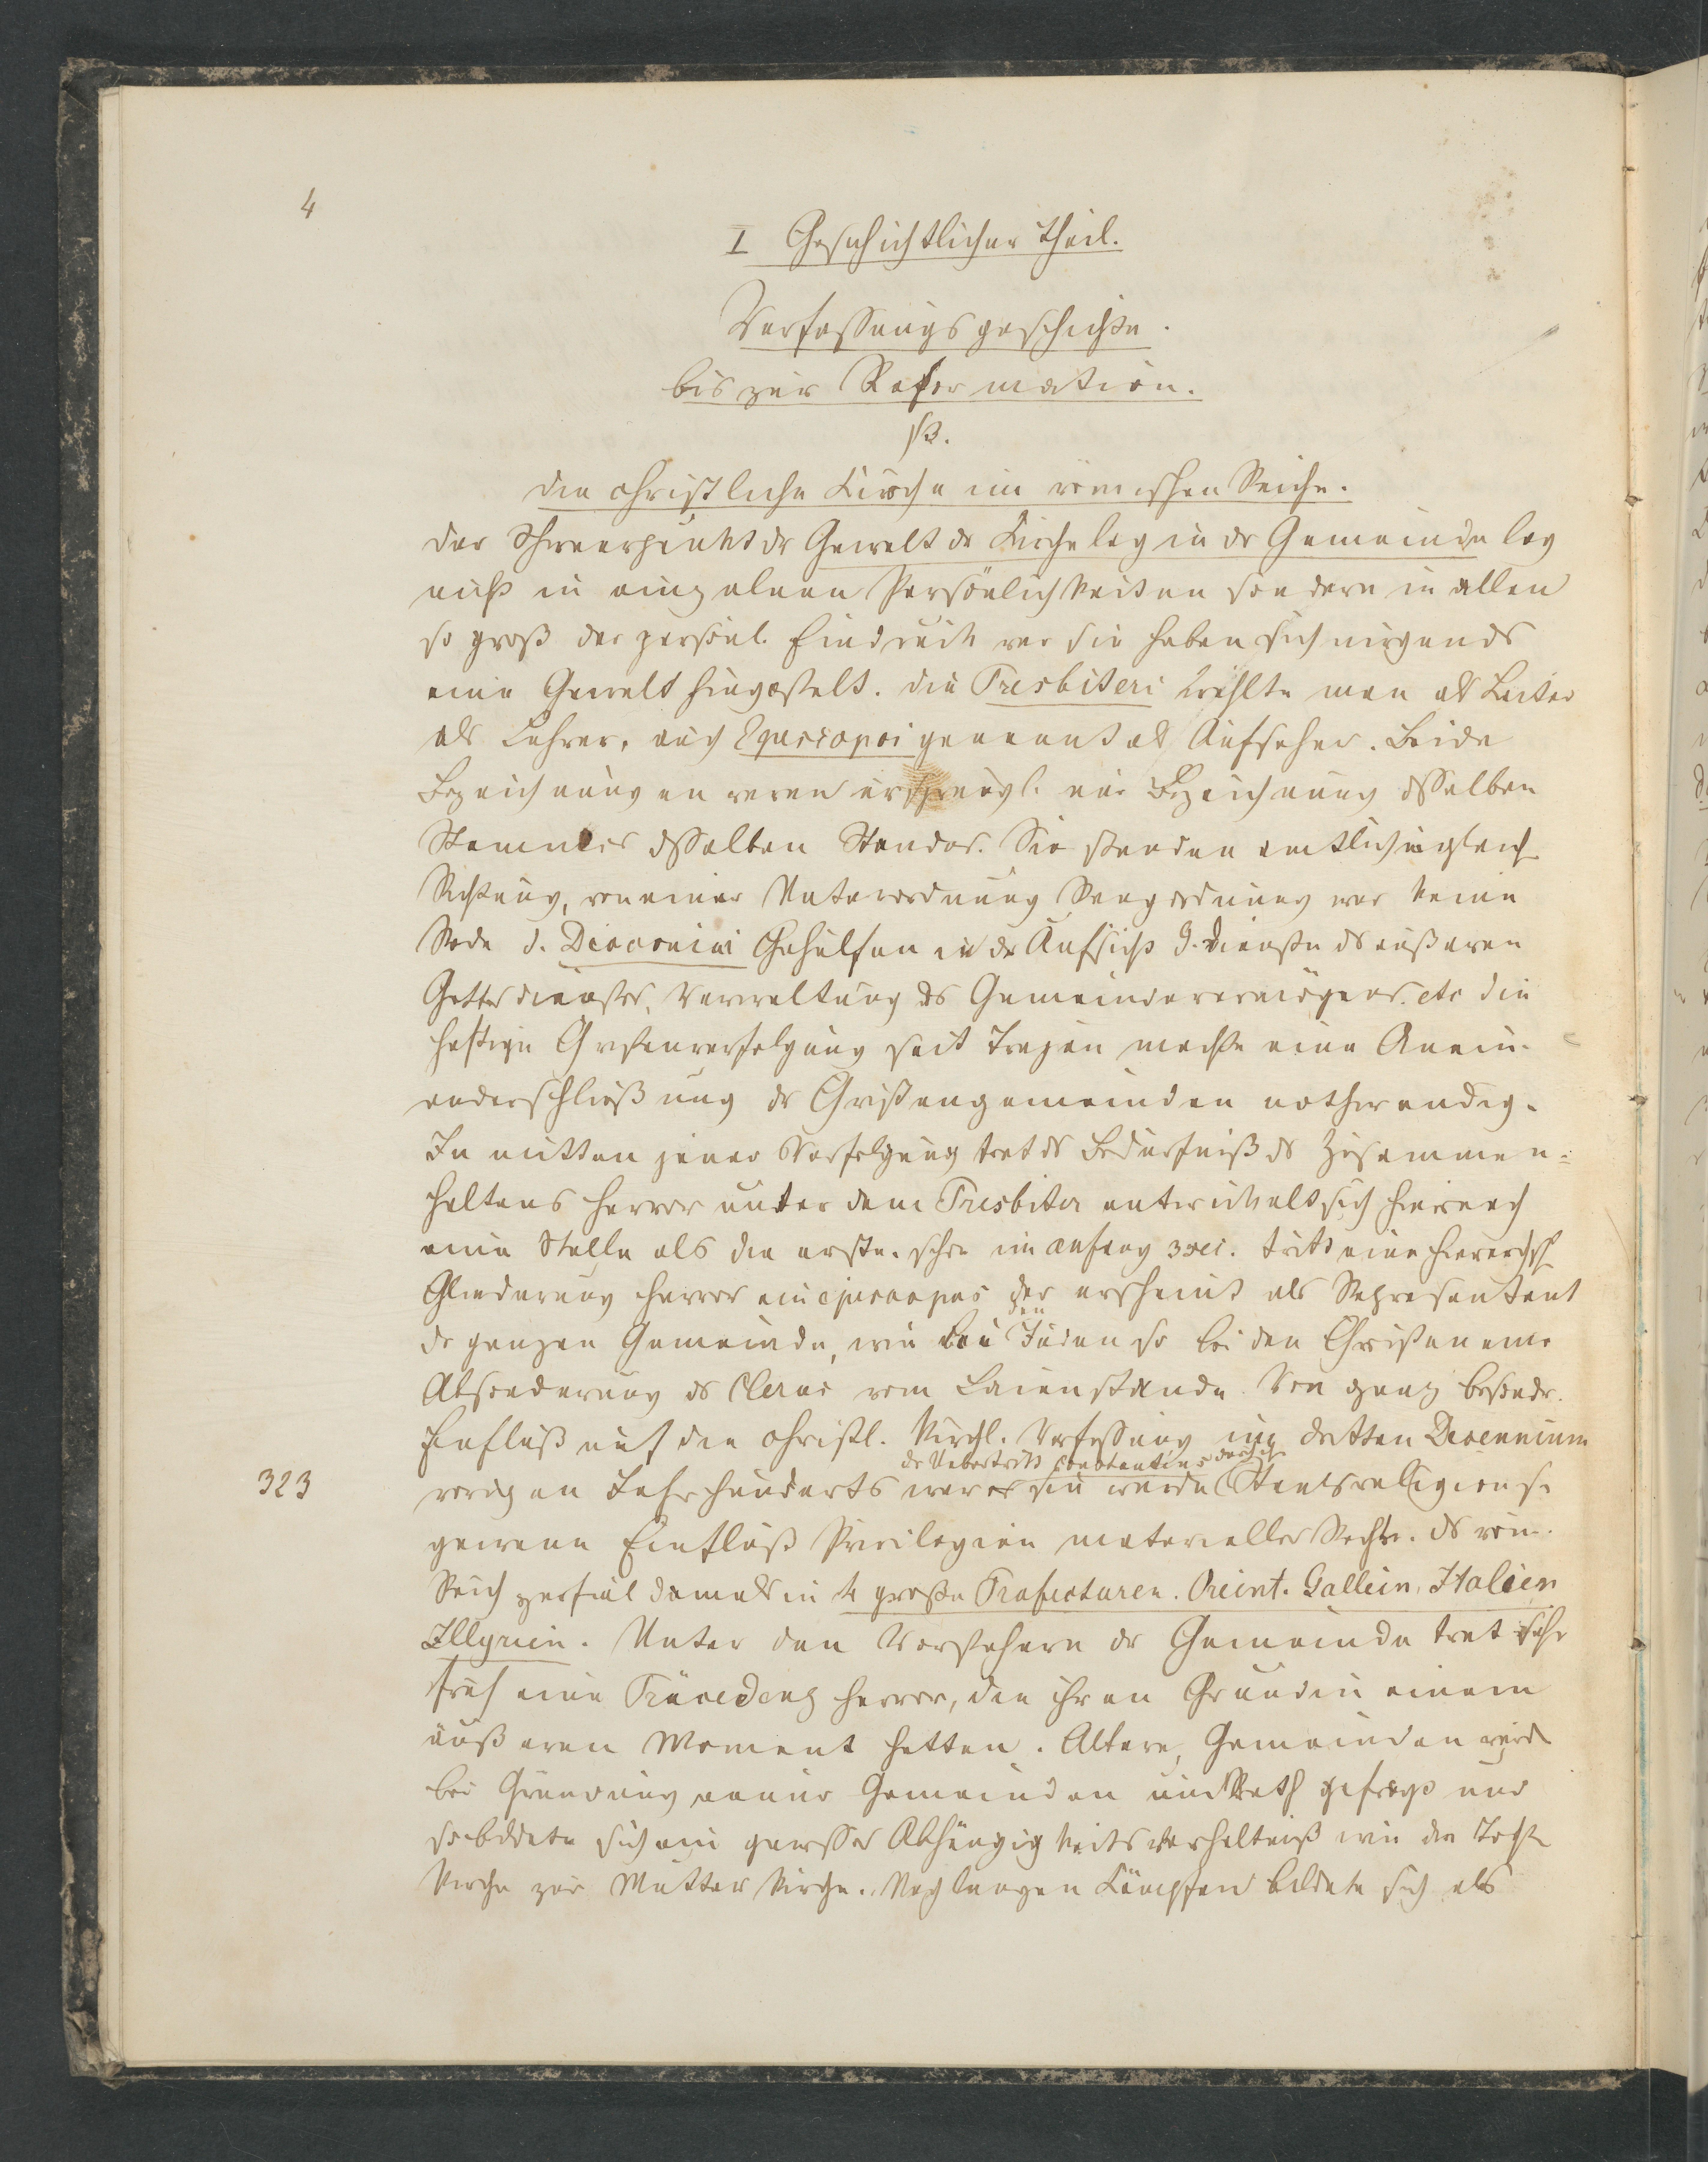 4
I Geschichtlicher Theil.
Verfassungsgeschichte.
bis zur Reformation.
§3.
Die christliche Kirche im römischen Reiche.
Der Schwerpunkt dr Gewalt dr Kirche lag in dr Gemeinde lag
nicht in einzelnen Persönlichkeiten sondern in allen
so groß der persönl. Eindruck war sie haben sich nirgends
eine Gewalt hingestelt. Die Presbiteri wählte man als Leiter
als Lehrer, auch Episcopoi genannt als Aufseher. Beide
Bezeichnungen waren ursprüngl. nur Bezeichnung dsselben
Stammes dsselben Standes. Sie standen amtlich in gleich
Richtung, von einer Unterordnung Rangordnung war keine
Rede d. Diaconici Gehülfen in dr Aufsicht G. Dienste ds äußeren
Gottesdienstes, Verwaltung ds Gemeindevermögens. etc die
heftige Christenverfolgung seit Trajan machte eine Anein-
anderschließung dr Christengemeinden nothwendig.
In mitten jener Verfolgung trat ds Bedürfniß ds Zusammen-
haltens hervor unter dem Presbiter entwickelt sich hiernach
eine Stelle als die erste. schon im anfang 3 sec. tritt eine hierarchsch
Gliederung hervor ein episcopos der erscheint als Repräsentant
dr ganzen Gemeinde, wie bei den Juden so bei den Christen eine
Absonderung ds Clerus vom Laienstande. Von ganz besondr.
Einfluß auf die christl. kirchl. Verfassung im dritten Decennium
dr Uebertritt Constantins dadurch
323 vorigen Jahrhunderts war es sie wurde Staatsreligion s.
gewann Einfluß Privilegien materieller Rechte. ds röm.
Reich zerfiel damals in 4 große Präfecturen. Oreint. Gallein, Italien
Illyrien. Unter den Vorstehern dr Gemeinde trat sehr
früh eine Präcedenz hervor, die ihren Grund in einem
äußeren Moment hatten. Altere, Gemeinden wurd
bei Gründung neuer Gemeinden um Rath gefragt und
so bildete sich ein gewisses Abhängigkeitsverhältniß wie die Tocht
kirche zur Mutterkirche. Nach langen Kämpfen bildete sich als